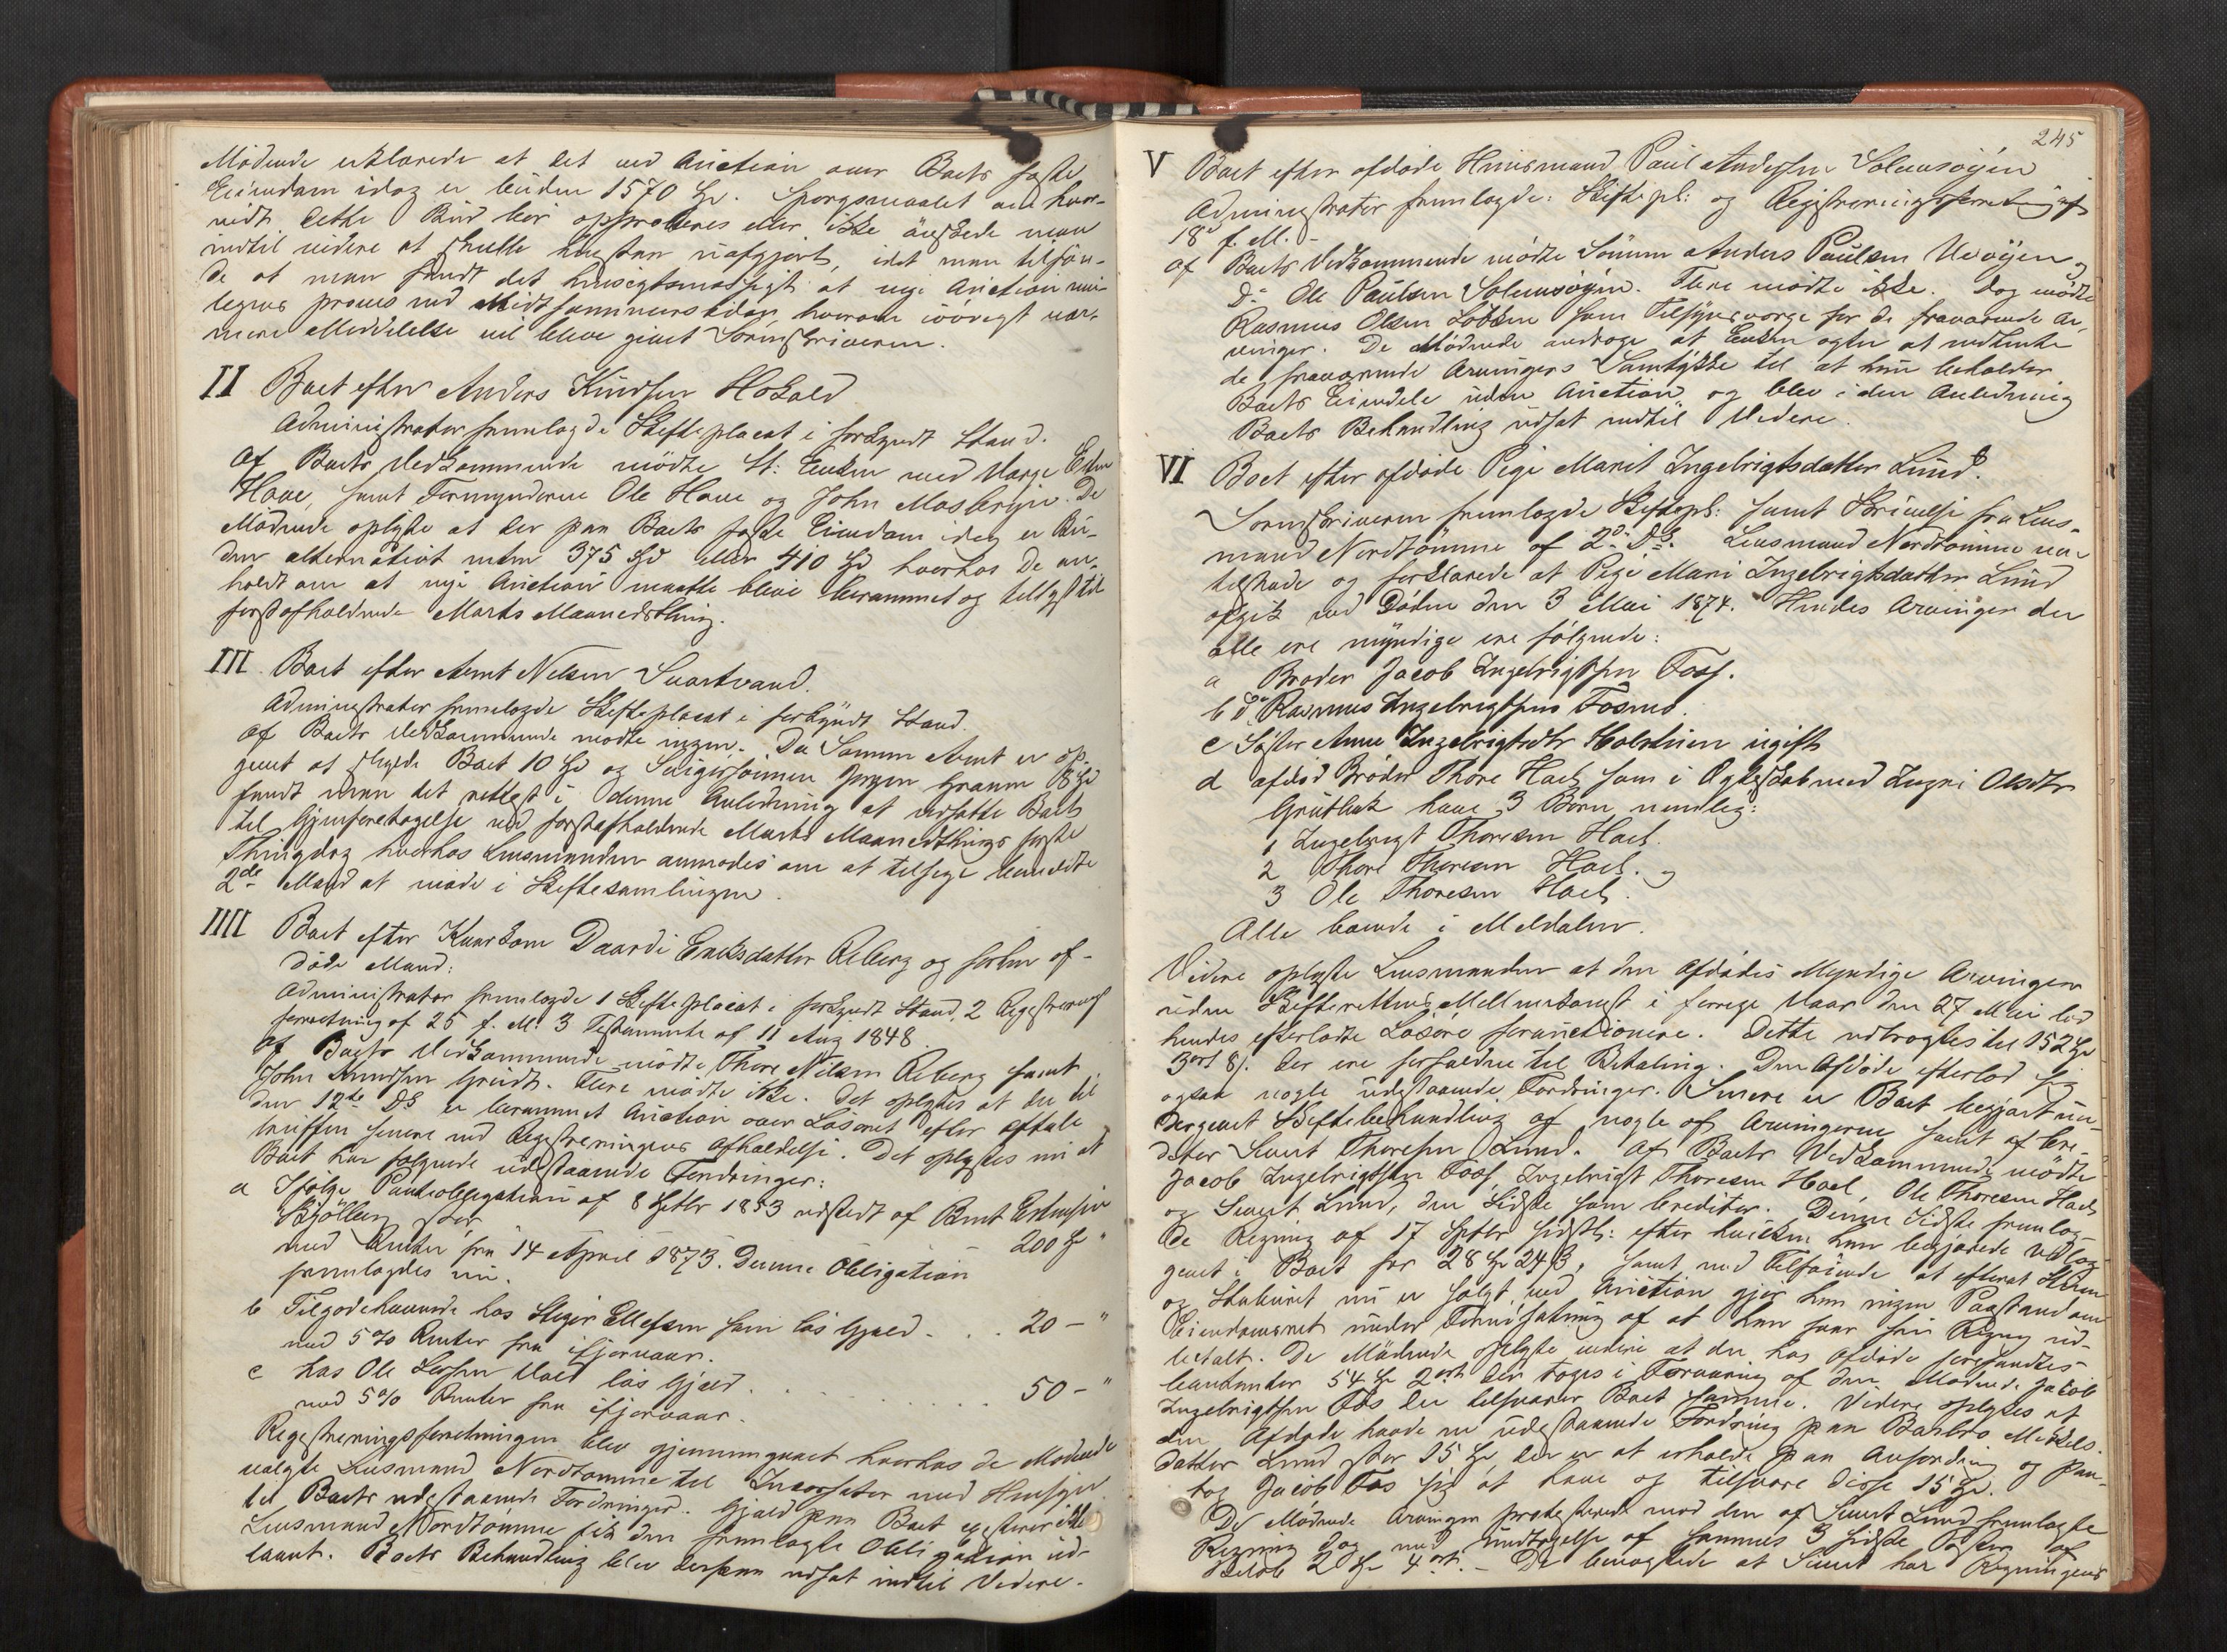 Mødende erklærede at det ved Auction over Boets faste
Eiendom idag er buden 1570 Spd. Spørgsmaalet om hvor-
vidt dette Bud bør approberes eller ikke ønskede man
indtil videre at skulle henstaa uafgjort, idet man tilføie-
de at man fandt det hensigtsmæssigt at nye Auction
prøves ved Midtsommerstider, hvorom iøvrigt nær-
mere Meddelelse vil blive givet Sorenskriveren.
II Boet efter Anders Knudsen Hokald
Administrator fremlagde Skifteplacat i forkyndt Stand.
Af Boets Vedkommende mødte St: Enken med Værge Esten
Hove, samt Formynderne Ole Hove og John Mosbryn. De
Mødende oplyste at der paa Boets faste Eiendom idag er Bu-
den alternativt enten 375 Spd eller 410 Spd hvorhos De an-
holdt om at nye Auction maatte blive berammet og tillyst til
førstafholdende Marts Maanedsthing.
III. Boet efter Arnt Nilsen Svartvand.
Administrator fremlagde Skifteplacat i forkyndt Stand.
Af Boets Vedkommende mødte ingen. Da Sønnen Arnt er op-
givet at skylde Boet 10 Spd og Svigersønnen Jørgen Graven 8 Spd
fandt man det rettest i denne Anledning at udsætte Boets
til Gjenforetagelse ved førstafholdende Marts Maanedsthings første
Thingdag hvorhos Lensmanden anmodes om at tilsige bemeldte
2de Mænd at møde i Skiftesamlingen.
IIII Boet efter Kaarkone Daardi Eriksdatter Aaberg og forhen af-
døde Mand:
Administrator fremlagde 1 Skifteplacat i forkyndt Stand, 2 Registrerings
forretning af 25 f. M. 3 Testamente af 11 Aug 1848.
Af Boets Vedkommende mødte Thore Nilsen Aaberg samt
John Knudsen Grindt. Flere mødte ikke. Det oplystes at der til
den 12te ds er berammet Auction over Løsøret efter Aftale
truffen senere ved Registreringens Afholdelse. Det oplystes nu at
Boet har følgende udestaaende Fordringer:
a Ifølge Panteobligation af 8 Septbr 1853 udstedt af Bernt Estensen
Skjølberg stor 200 Spd "
med Renter fra 14 April 1873. Denne Obligation
fremlagdes nu.
b Tilgodehavende hos Steger Ellefsen som løs Gjæld . . . 20 – "
med 5% Renter fra ifjorvaar.
c hos Ole Larsen Vold løs Gjæld . . . . . . . . 50 – "
med 5% Renter fra ifjorvaar.
Registreringsforretningen blev gjennemgaaet hvorhos de Mødende
valgte Lensmand Nordtømme til Incassator med Hensyn
til Boets udestaaende Fordringer. Gjæld paa Boet existerer ikke
Lensmand Nordtømme fik den fremlagte Obligation ud-
laant. Boets Behandling blev derpaa udsat indtil Videre.
245
V Boet efter afdøde Huusmand Paul Andersen Solemsøyen
Administrator fremlagde: Skiftepl: og Registreringsforretning af
18de f. M. –
Af Boets Vedkommende mødte Sønnen Anders Paulsen Uvøyen og
Do Ole Paulsen Solemsøyen. Flere mødte ikke. Dog mødte
Rasmus Olsen Løkken som Tilsynsværge for de fraværende Ar-
vinger. De Mødende androge at Enken agter at indhente
de fraværende Arvingers Samtykke til at hun beholder
Boets Eiendele uden Auction, og blev i den Anledning
Boets Behandling udsat indtil Videre.
VI Boet efter afdøde Pige Marit Ingebrigtsdatter Lund.
Sorenskriveren fremlagde Skiftepl: samt Skrivelse fra Lens-
mand Nordtømme af 2den ds. Lensmand Nordtømme var
tilstede og forklarede at Pige Mari Ingebrigtsdatter Lund
afgik ved Døden den 3 Mai 1874. Hendes Arvinger der
alle ere myndige ere følgende:
a Broder Jacob Ingebrigtsen Foss.
b do Rasmus Ingebrigtsen Fosmo.
c Søster Anne Ingebrigtsdtr Holstien ugift
d afdød Broder Thore Hoel som i Ægteskab med Ingri Olsdtr
Grutbak have 3 Børn nemlig:
1 Ingebrigt Thoresen Hoel.
2 Thore Thoresen Hoel. og
3 Ole Thoresen Hoel.
Alle boende i Meldalen.
Videre oplyste Lensmanden at den Afdødes Myndige Arvinger
uden Skifterettens Mellemkomst i forrige Vaar den 27 Mai lod
hendes efterladte Løsøre forauctionere. Dette udbragtes til 152 Spd
3 ort 8 s. der ere forfaldne til Betaling. Den Afdøde efterlod sig
ogsaa nogle udestaaende Fordringer. Senere er Boet begjært un-
dergivet Skiftebehandling af nogle af Arvingerne samt af Cre-
ditor Sivert Thoresen Lund. Af Boets Vedkommende mødte
Jacob Ingebrigtsen Foss, Ingebrigt Thoresen Hoel, Ole Thoresen Hoel
og Sivert Lund, den Sidste som Creditor. Denne Sidste fremlag-
de Regning af 17 Septbr sidstl: efter hvilken han begjærede Udlæg
givet i Boet for 28 Spd 24 s, samt med Tilføiende at efterat
og Stabburet nu er solgt ved Auction gjør han ingen Paastand om
Eiendomsret under Forudsætning af at han faar sin Regning ud-
betalt. De Mødende oplyste videre at der hos Afdøde forefandtes
contanter 54 Spd 2 ort der toges i Forvaring af den Mødende Jacob
Ingebrigtsen Fos der tilsvarer Boet samme. Videre oplystes at
den Afdøde havde en udestaaende Fordring paa Barbro Mikkels-
datter Lund stor 15 Spd, der er at erholde paa Anfordring og paa-
tog Jacob Fos sig at have og tilsvare disse 15 Spd.
De Mødende Arvinger protesterede mod den af Sivert Lund fremlagte
Regning dog med Undtagelse af sammes 3 sidste Poster af
Beløb 2 Spd 4 ort. – De benægtede at Sivert har Regningens